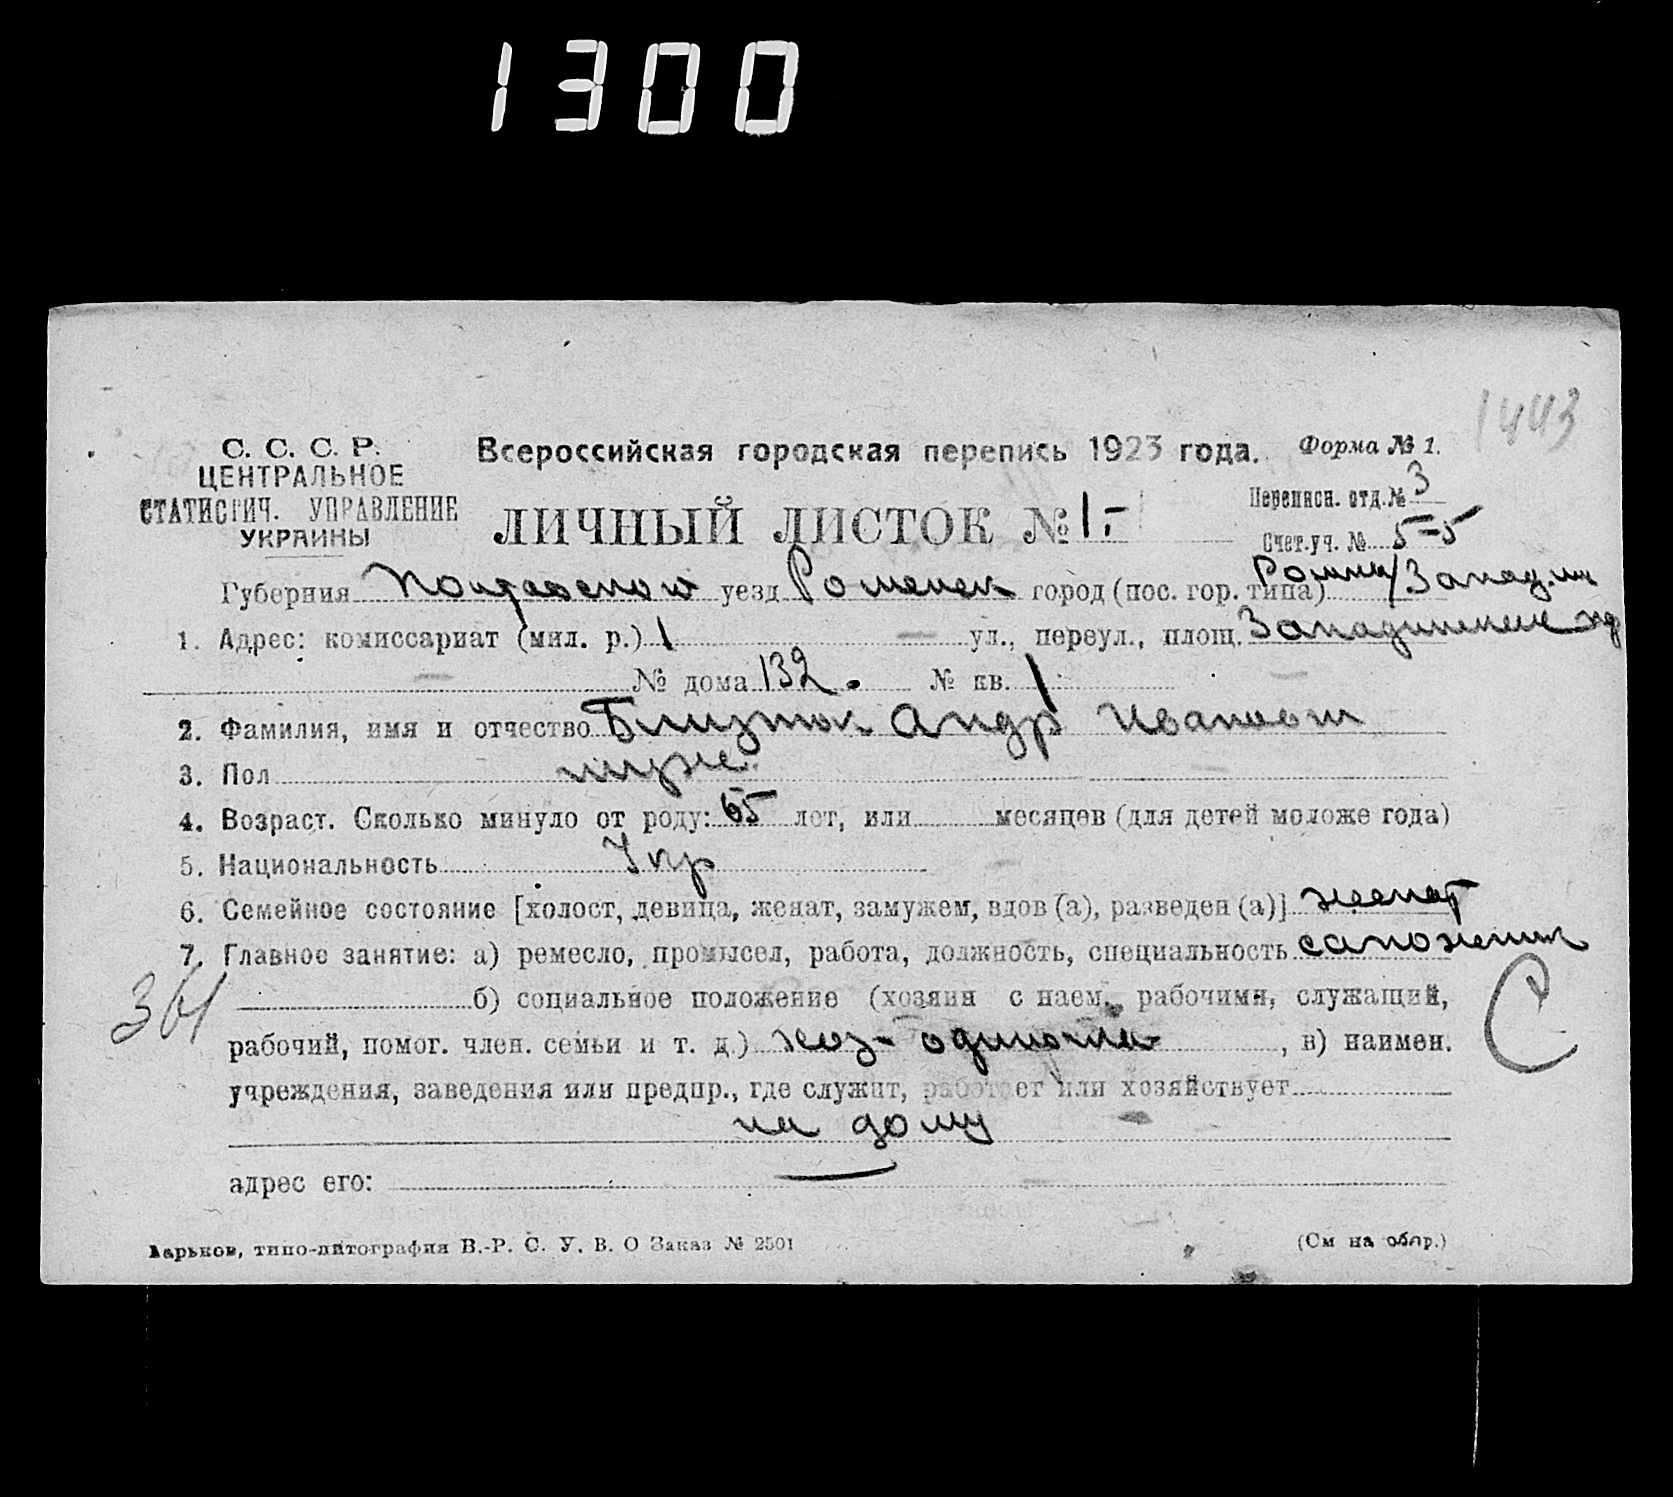 1300
1443
С. С. С. Р.
ЦЕНТРАЛЬНОЕ
СТАТИСТИЧ. УПРАВЛЕНИЕ
УКРАИНЫ
Всероссийская городская перепись 1923 года.
Форма № 1.
ЛИЧНЫЙ ЛИСТОК № 1-
Переписн. отд. № 3
Счет. уч. № 5-5
Губерния Полтавской уезд Роменск город (пос. гор. типа) Ромны/
1. Адрес: комиссариат (мил. р.) 1 ул., переул., площ.
№ дома 132. № кв. 1
2. Фамилия, имя и отчество Близнюк Андр Иванович
3. Пол муже.
4. Возраст. Сколько минуло от роду: 65 лет, или месяцев (для детей моложе года)
5. Национальность Укр
6. Семейное состояние [холост, девица, женат, замужем, вдов (а), разведен (а)] женат
7. Главное занятие: а) ремесло, промысел, работа, должность, специальность сапожник
361
б) социальное положение (хозяин с наем. рабочими, служащий,
С
рабочий, помог. член. семьи и т. д.) хоз- одиночка , в) наимен.
учреждения, заведения или предпр., где служит, работает или хозяйствует
на дому
адрес его:
Харьков, типо-литография В.-Р. С. У. В. О Заказ № 2501
(См на обор.)